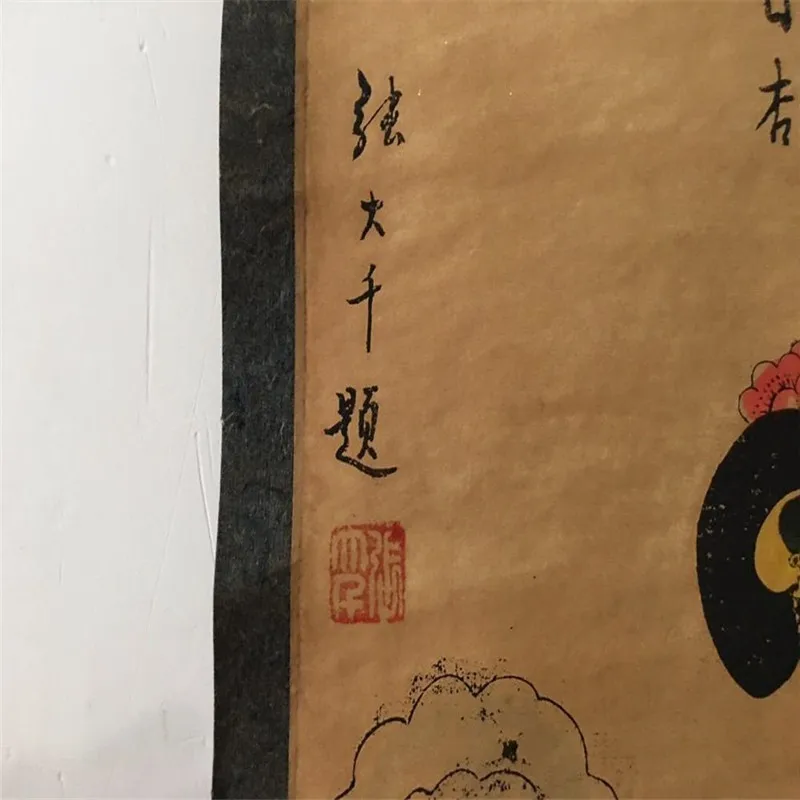 杏
張大千題